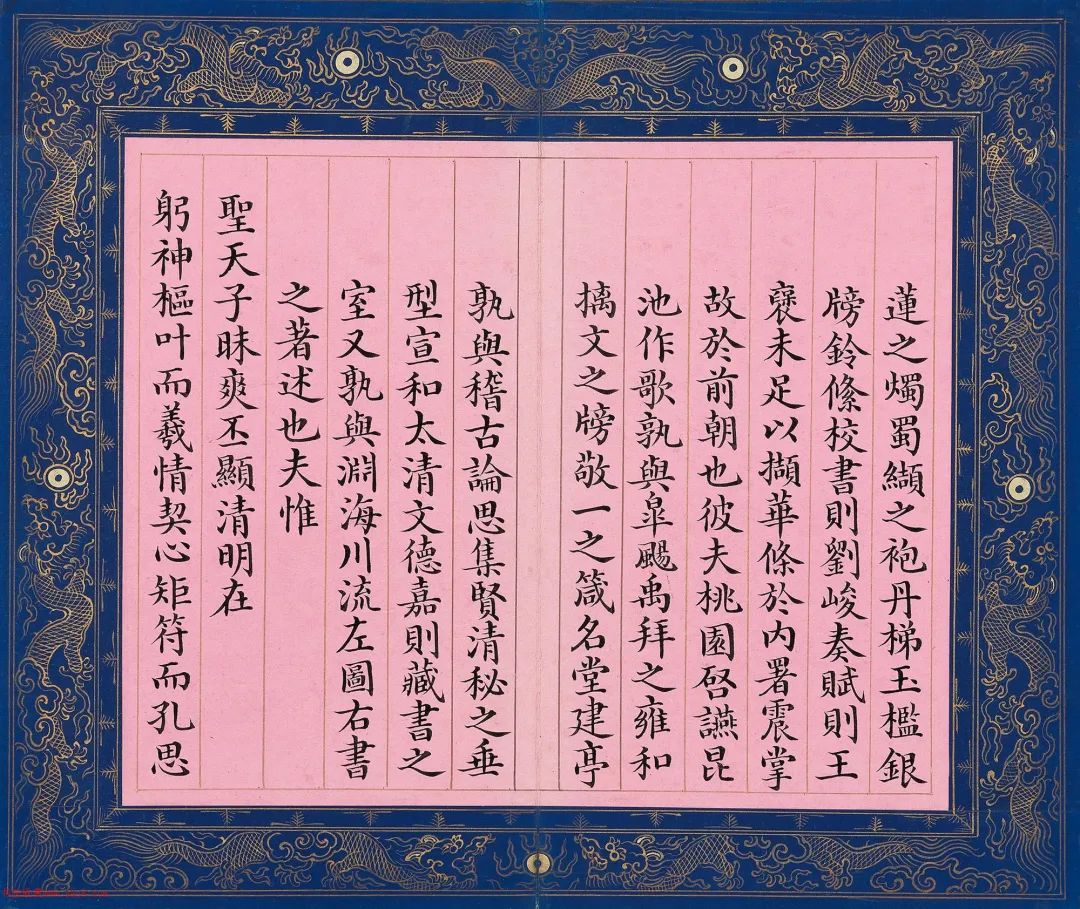 蓮之燭蜀纈之袍丹梯玉檻銀
牓鈴絛校書則劉峻奏賦則王
襃未足以擷華條於内署震掌
故於前朝也彼夫桃園啓讌昆
池作歌孰與皐颺禹拜之雍和
摛文之牓敬一之箴名堂建亭
孰與稽古論思集賢清秘之垂
型宣和太清文德嘉則藏書之
室又孰與淵海川流左圖右書
之著述也夫惟
聖天子昧爽丕顯清明在
躬神樞叶而羲情契心矩符而孔思